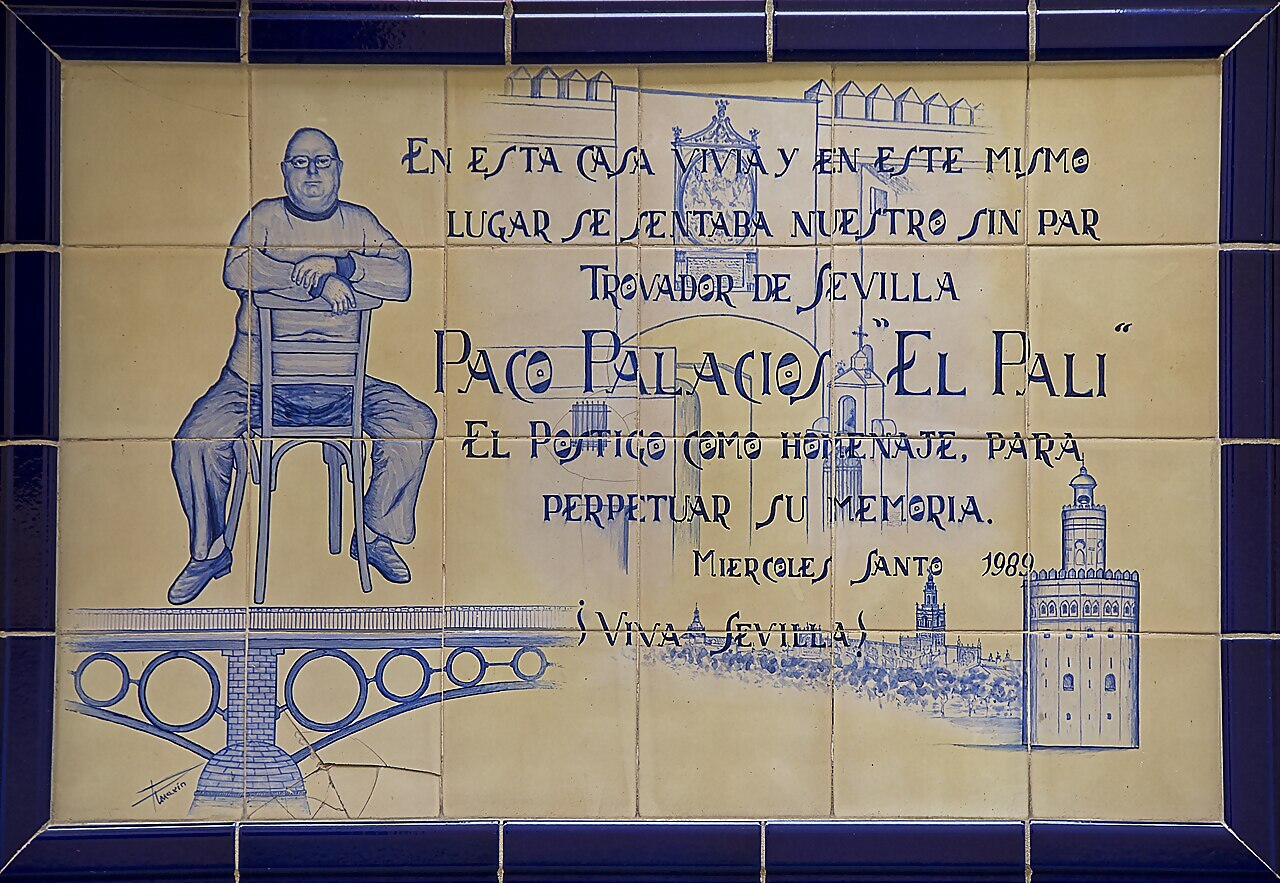 EN ESTA CASA VIVIA Y EN ESTE MISMO
LUGAR SE SENTABA NUESTRO SIN PAR
TROVADOR DE SEVILLA
PACO PALACIOS "EL PALI"
EL POSTIGO COMO HOMENAJE, PARA
PERPETUAR SU MEMORIA.
MIERCOLES SANTO 1989
¡VIVA SEVILLA!